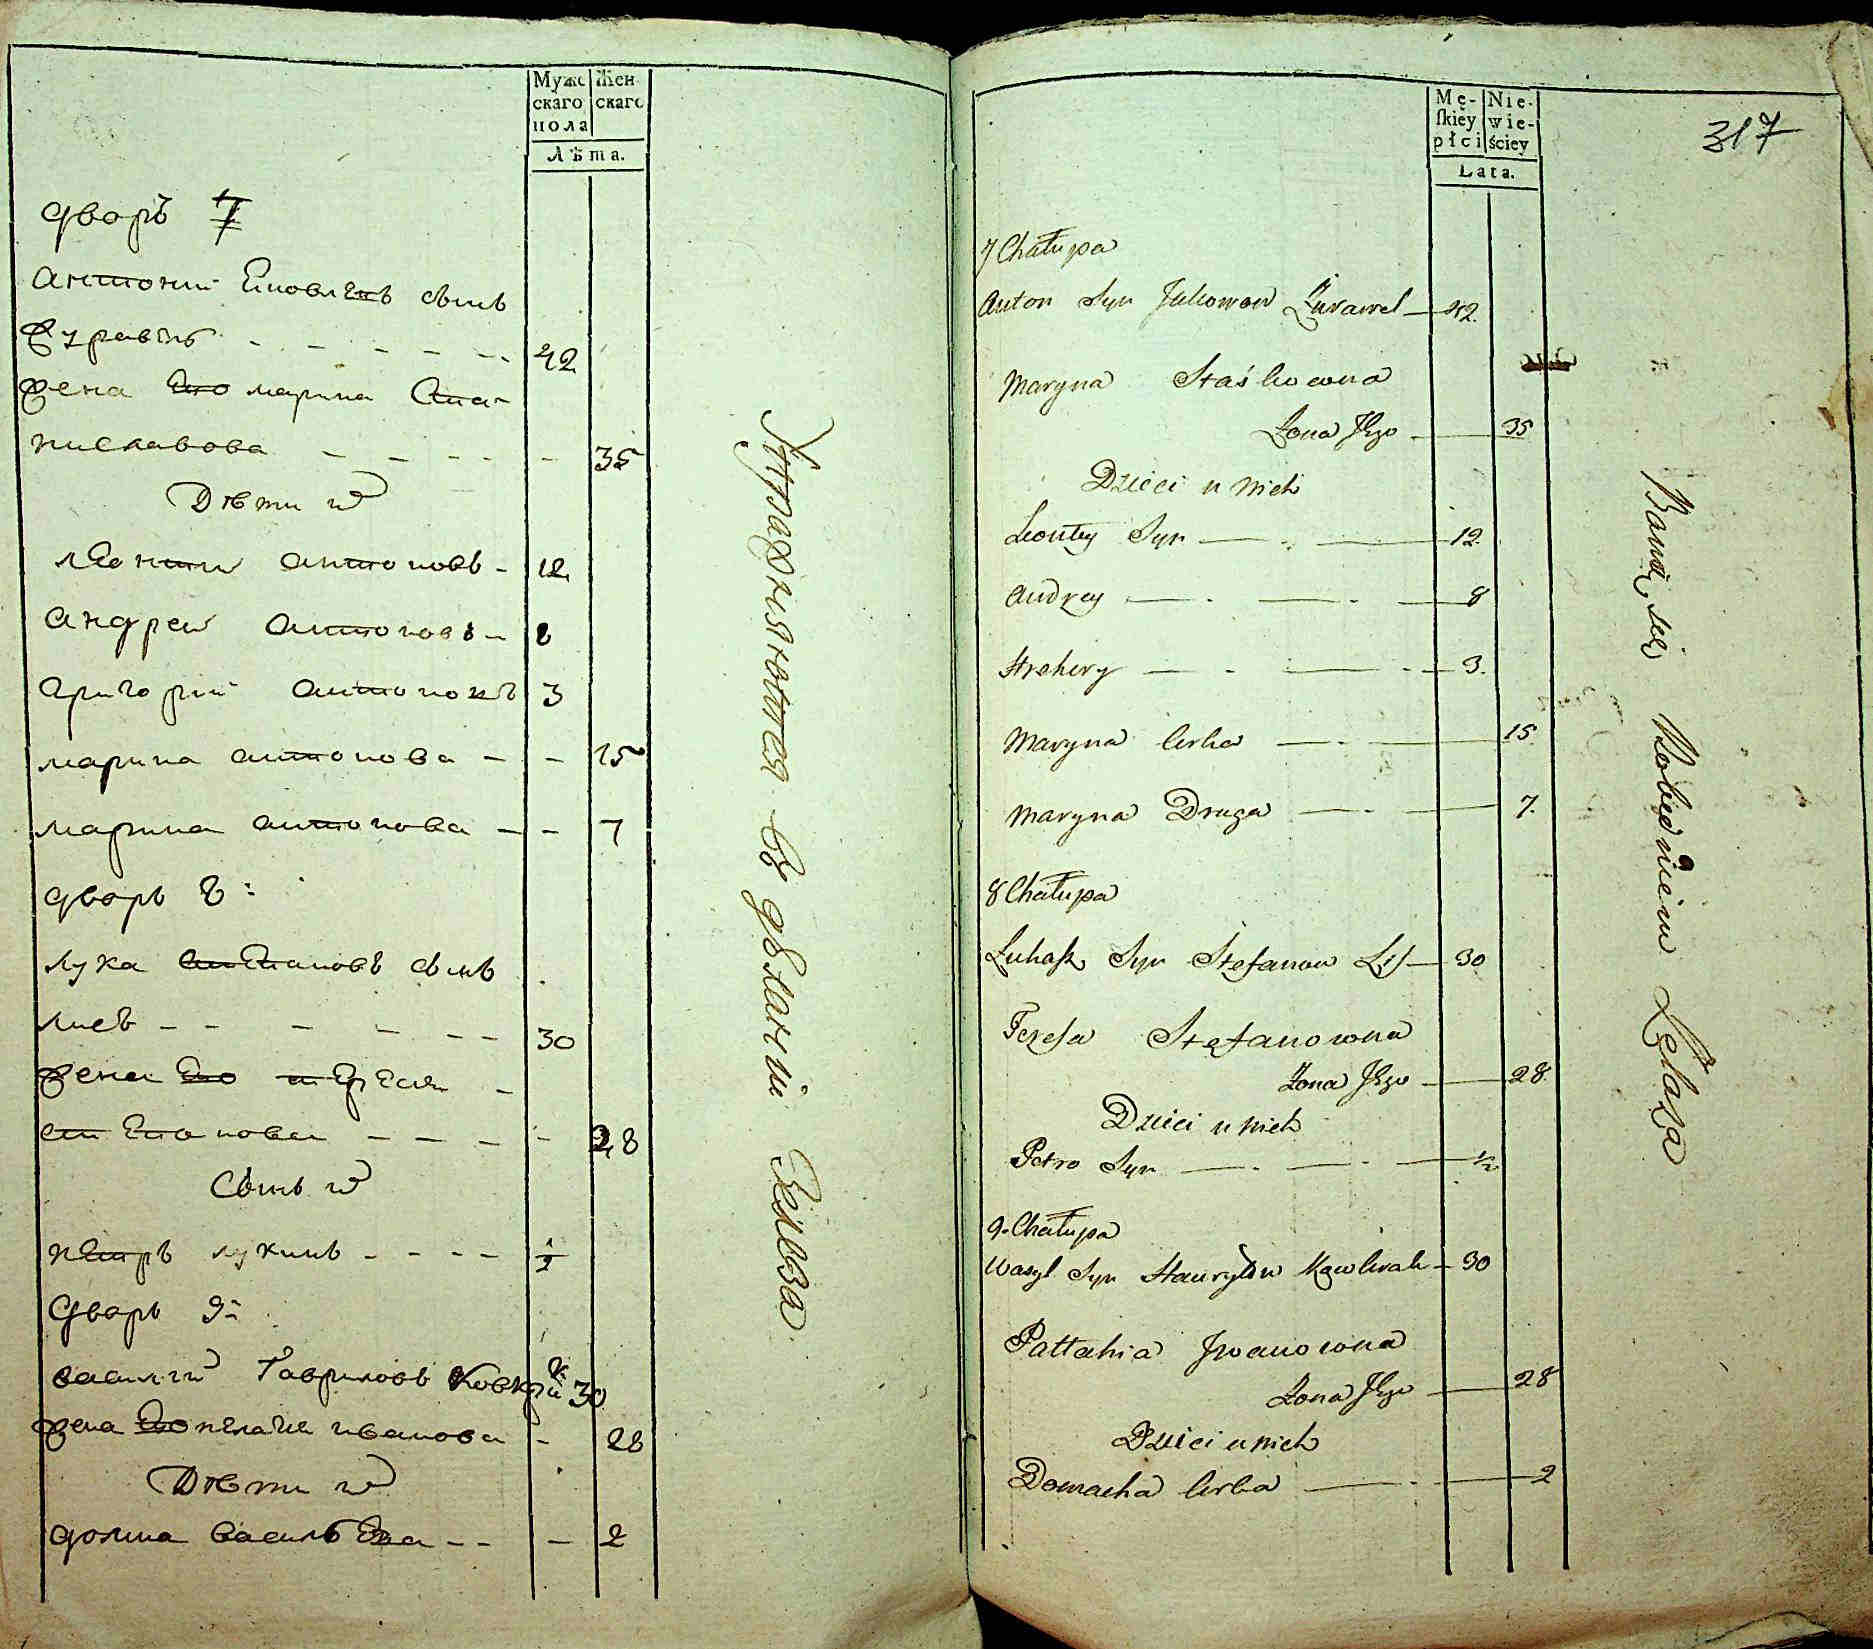 Мужс
скаго
пола
Жен
скаго
Лѣта.
дворъ 7
антоний яковлевъ сынъ
Журавль - - - - - 42
жена Ево марина Ста-
ниславова - - - - - 35
Дѣти и
леонтий антоновъ - 12
андрей антоновъ - 8
григорий антоновъ 3
марина антонова - - 15
марина антонова - - 7
дворъ 8:
лука степановъ сынъ
лисъ - - - - - 30
жена Ево терезия -
степанова - - - - - 28
Сынъ и
петръ лукинъ - - - - 1/2
дворъ 9:
василий Гавриловъ 30
жена Ево пелагия иванова - 28
Дѣти и
домна васильева - - - 2
Упражняютея въ дѣлании Зелѣза
Mę-
ſkiey
płci
Nie-
wie-
ściey
Lata.
317
7 Chałupa
Anton Syn Jakowow Żurawel — 42.
Maryna Staśkowna
Żona Jego — 35
Dzieci u nich
Leontey Syn — 12.
Andrey — 8
Hrehory — 3.
Maryna Corka — 15.
Maryna Druga — 7.
8 Chałupa
Lukaſz Syn Stefanow Lis — 30
Tereſa Stefanowna
Żona Jego — 28.
Dzieci u nich
Petro Syn — 1/2
9. Chałupa
Wasyl Syn Hawryłow Kowkrak — 30
Pallahia Jwanowna
Żona Jego — 28
Dzieci u nich
Domacha Corka — 2
Bawią się Robieniem Żelaza